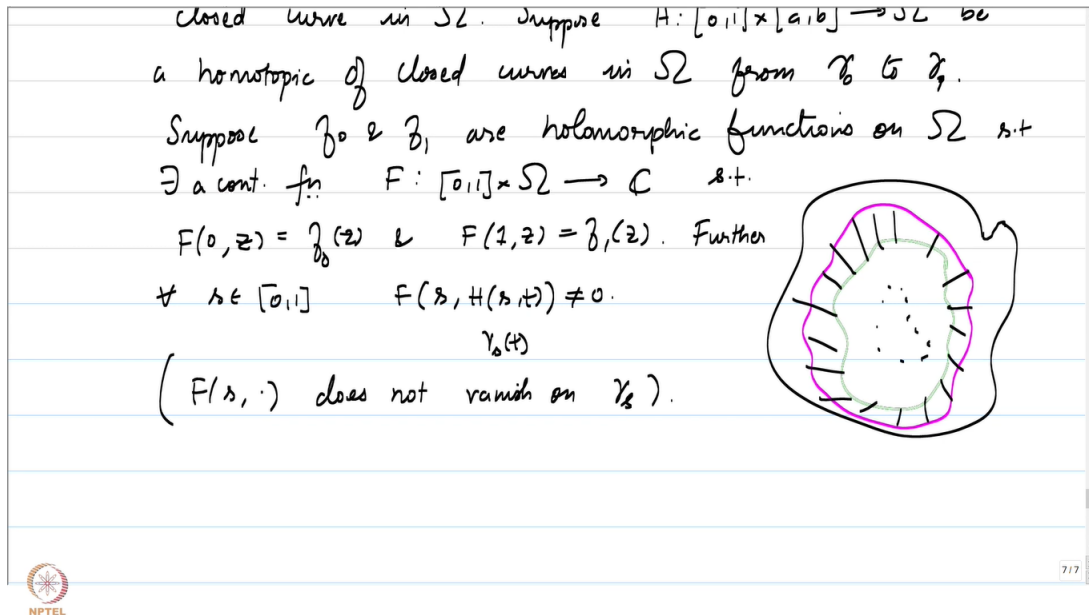 closed curve in Ω. Suppose H: [0,1] × [a,b] → Ω be
a homotopic of closed curves in Ω from γ₀ to γ₁.
Suppose f₀ & f₁ are holomorphic functions on Ω s.t
∃ a cont. fn F: [0,1] × Ω → ℂ s.t.
F(0,z) = f₀(z) & F(1,z) = f₁(z). Further
∀ s ∈ [0,1] F(s, H(s,t)) ≠ 0.
γₛ(t)
(F(s, ·) does not vanish on γₛ).
7/7
NPTEL